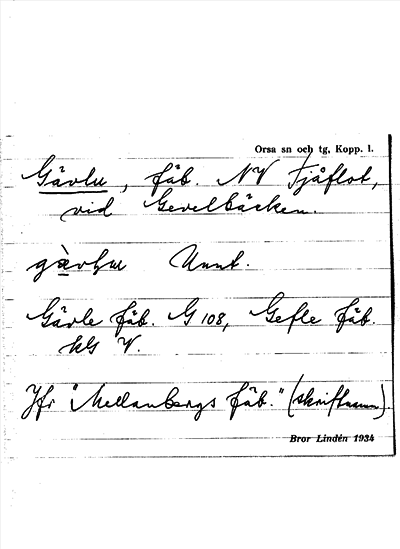 Orsa sn och tg, Kopp. l.
Gävlu, fäb. NV Fjåflot,
vid Gevelbäcken.
Unnt.
Gävle fäb. G 108, Gefle fäb.
V.
Jfr "Mellanbergs fäb." (skriftnamn).
Bror Lindén 1934